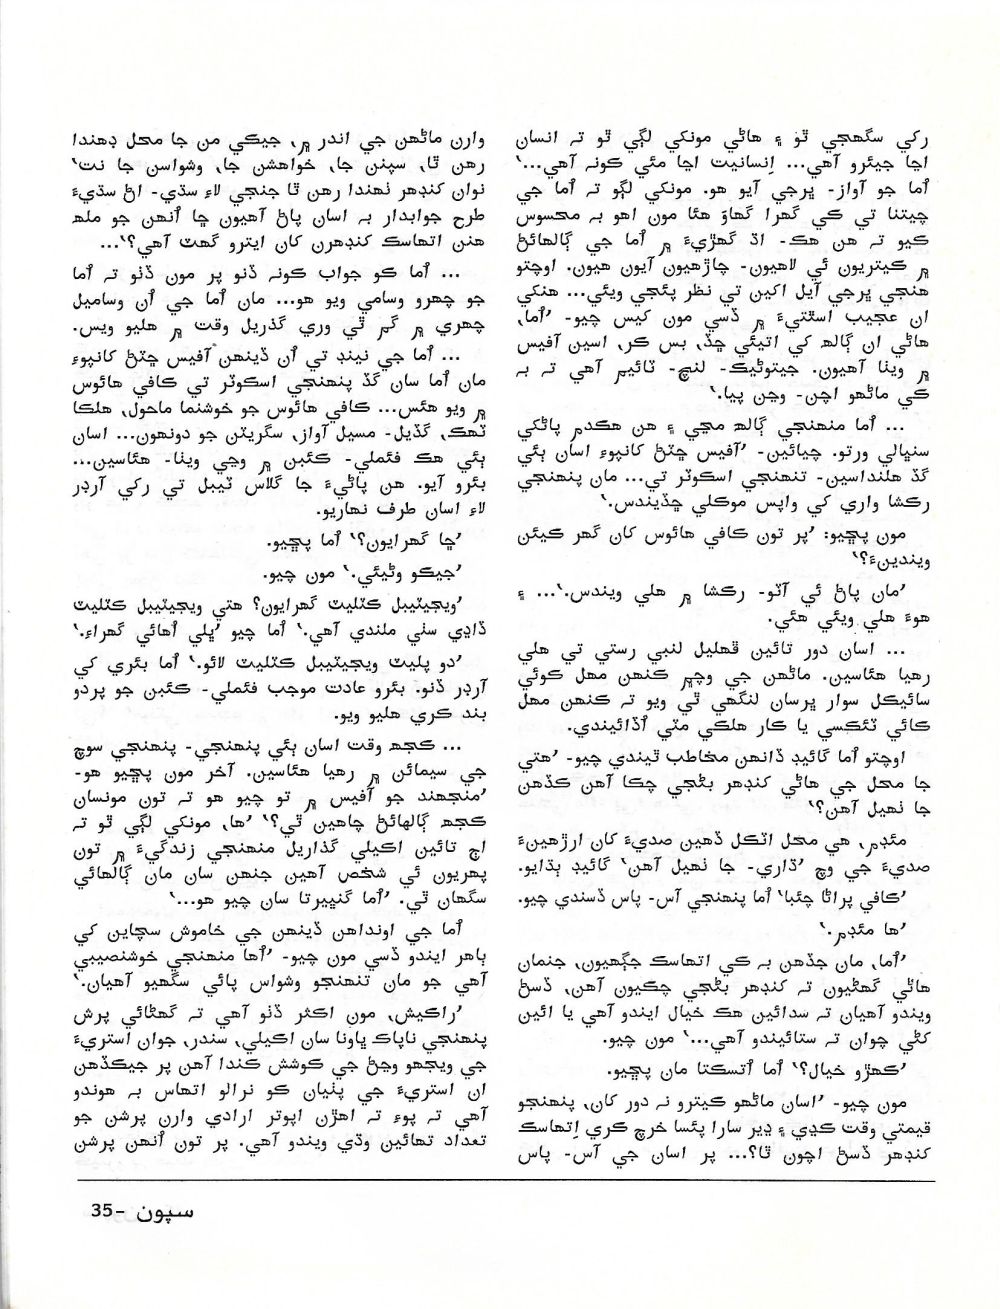 رکي سگهجي ٿو ۽ هاڻي مونکي لڳي ٿو تہ انسان
اڃا جيئرو آهي... اِنسانيت اڃا مئي کونہ آهي...‘
اُما جو آواز- ڀرجي آيو هو. مونکي لڳو تہ اُما جي
چيتنا تي ڪي گهرا گهاوَ هئا مون اهو بہ محسوس
ڪيو تہ هن هڪ- اڌ گهڙيءَ ۾ اُما جي ڳالهائڻ
۾ ڪيتريون ئي لاهيون- چاڙهيون آيون هيون. اوچتو
هنجي ڀرجي آيل اکين تي نظر پئجي ويئي... هنکي
ان عجيب استتيءَ ۾ ڏسي مون کيس چيو- ’اُما،
هاڻي ان ڳالھ کي اتيئي ڇڏ، بس ڪر، اسين آفيس
۾ ويٺا آهيون. جيتوڻيڪ- لنچ- ٽائيم آهي تہ بہ
ڪي ماڻهو اچن- وڃن پيا.‘
... اُما منهنجي ڳالھ مڃي ۽ هن هڪدم پاڻکي
سنڀالي ورتو. چيائين- ’آفيس ڇٽڻ کانپوءِ اسان ٻئي
گڏ هلنداسين- تنهنجي اسڪوٽر تي... مان پنهنجي
رڪشا واري کي واپس موڪلي ڇڏيندس.‘
مون پڇيو: ’پر تون ڪافي هائوس کان گهر ڪيئن
ويندينءَ؟‘
’مان پاڻ ئي آٽو- رڪشا ۾ هلي ويندس.‘... ۽
هوءَ هلي ويئي هئي.
... اسان دور تائين ڦهليل لنبي رستي تي هلي
رهيا هئاسين. ماڻهن جي وچم ڪنهن مهل ڪوئي
سائيڪل سوار ڀرسان لنگهي ٿي ويو تہ ڪنهن مهل
ڪائي ٽئڪسي يا ڪار هلڪي مٽي اُڏائيندي.
اوچتو اُما گائيڊ ڏانهن مخاطب ٿيندي چيو- ’هتي
جا محل جي هاڻي کنڊهر بڻجي چڪا آهن ڪڏهن
جا ٺهيل آهن؟‘
مئڊم، هي محل اٽڪل ڏهين صديءَ کان ارڙهينءَ
صديءَ جي وچ ’ڌاري- جا ٺهيل آهن‘ گائيڊ ٻڌايو.
’ڪافي پراڻا چئبا‘ اُما پنهنجي آس- پاس ڏسندي چيو.
’ها مئڊم.‘
’اُما، مان جڏهن بہ ڪي اتهاسڪ جڳهيون، جنمان
هاڻي گهڻيون تہ کنڊهر بڻجي چڪيون آهن، ڏسڻ
ويندو آهيان تہ سدائين هڪ خيال ايندو آهي يا ائين
کڻي چوان تہ ستائيندو آهي...‘ مون چيو.
’ڪهڙو خيال؟‘ اُما اُتسڪتا مان پڇيو.
مون چيو- ’اسان ماڻهو ڪيترو نہ دور کان، پنهنجو
قيمتي وقت ڪڍي ۽ ڍير سارا پئسا خرچ ڪري اِتهاسڪ
کنڊهر ڏسڻ اچون ٿا؟... پر اسان جي آس- پاس
وارن ماڻهن جي اندر ۾، جيڪي من جا محل ڊهندا
رهن ٿا، سپنن جا، خواهشن جا، وشواسن جا نت‘
نوان کنڊهر ٺهندا رهن ٿا جنجي لاءِ سڌي- اڻ سڌيءَ
طرح جوابدار بہ اسان پاڻ آهيون ڇا اُنهن جو ملھ
هنن اتهاسڪ کنڊهرن کان ايترو گهٽ آهي؟‘...
... اُما ڪو جواب ڪونہ ڏنو پر مون ڏٺو تہ اُما
جو چهرو وسامي ويو هو... مان اُما جي اُن وساميل
چهري ۾ گم ٿي وري گذريل وقت ۾ هليو ويس.
... اُما جي نيٺ تي اُن ڏينهن آفيس ڇٽڻ کانپوءِ
مان اُما سان گڏ پنهنجي اسڪوٽر تي ڪافي هائوس
۾ ويو هئس... ڪافي هائوس جو خوشنما ماحول، هلڪا
ٽهڪ، گڏيل- مسيل آواز، سگريٽن جو دونهون... اسان
ٻئي هڪ فئملي- ڪئبن ۾ وڃي ويٺا- هئاسين...
بئرو آيو. هن پاڻيءَ جا گلاس ٽيبل تي رکي آرڊر
لاءِ اسان طرف نهاريو.
’ڇا گهرايون؟‘ اُما پڇيو.
’جيڪو وڻيئي.‘ مون چيو.
’ويجيٽيبل ڪٽليٽ گهرايون؟ هتي ويجيٽيبل ڪٽليٽ
ڏاڍي سٺي ملندي آهي.‘ اُما چيو ’ڀلي اُهائي گهراءِ.‘
’دو پليٽ ويجيٽيبل ڪٽليٽ لائو.‘ اُما بئري کي
آرڊر ڏنو. بئرو عادت موجب فئملي- ڪئبن جو پردو
بند ڪري هليو ويو.
... ڪجھ وقت اسان ٻئي پنهنجي- پنهنجي سوچ
جي سيمائن ۾ رهيا هئاسين. آخر مون پڇيو هو-
’منجهند جو آفيس ۾ تو چيو هو تہ تون مونسان
ڪجھ ڳالهائڻ چاهين ٿي؟‘ ’ها، مونکي لڳي ٿو تہ
اڄ تائين اڪيلي گذاريل منهنجي زندگيءَ ۾ تون
پهريون ئي شخص آهين جنهن سان مان ڳالهائي
سگهان ٿي. ’اُما گنڀيرتا سان چيو هو...‘
اُما جي اونداهن ڏينهن جي خاموش سچاين کي
ٻاهر ايندو ڏسي مون چيو- ’اُها منهنجي خوشنصيبي
آهي جو مان تنهنجو وشواس پائي سگهيو آهيان.‘
’راڪيش، مون اڪثر ڏٺو آهي تہ گهڻائي پرش
پنهنجي ناپاڪ ڀاونا سان اڪيلي، سندر، جوان استريءَ
جي ويجهو وڃڻ جي ڪوشش ڪندا آهن پر جيڪڏهن
ان استريءَ جي پٺيان ڪو نرالو اتهاس بہ هوندو
آهي تہ پوءِ تہ اهڙن اپوتر ارادي وارن پرشن جو
تعداد تهائين وڌي ويندو آهي. پر تون اُنهن پرشن
سپون -35